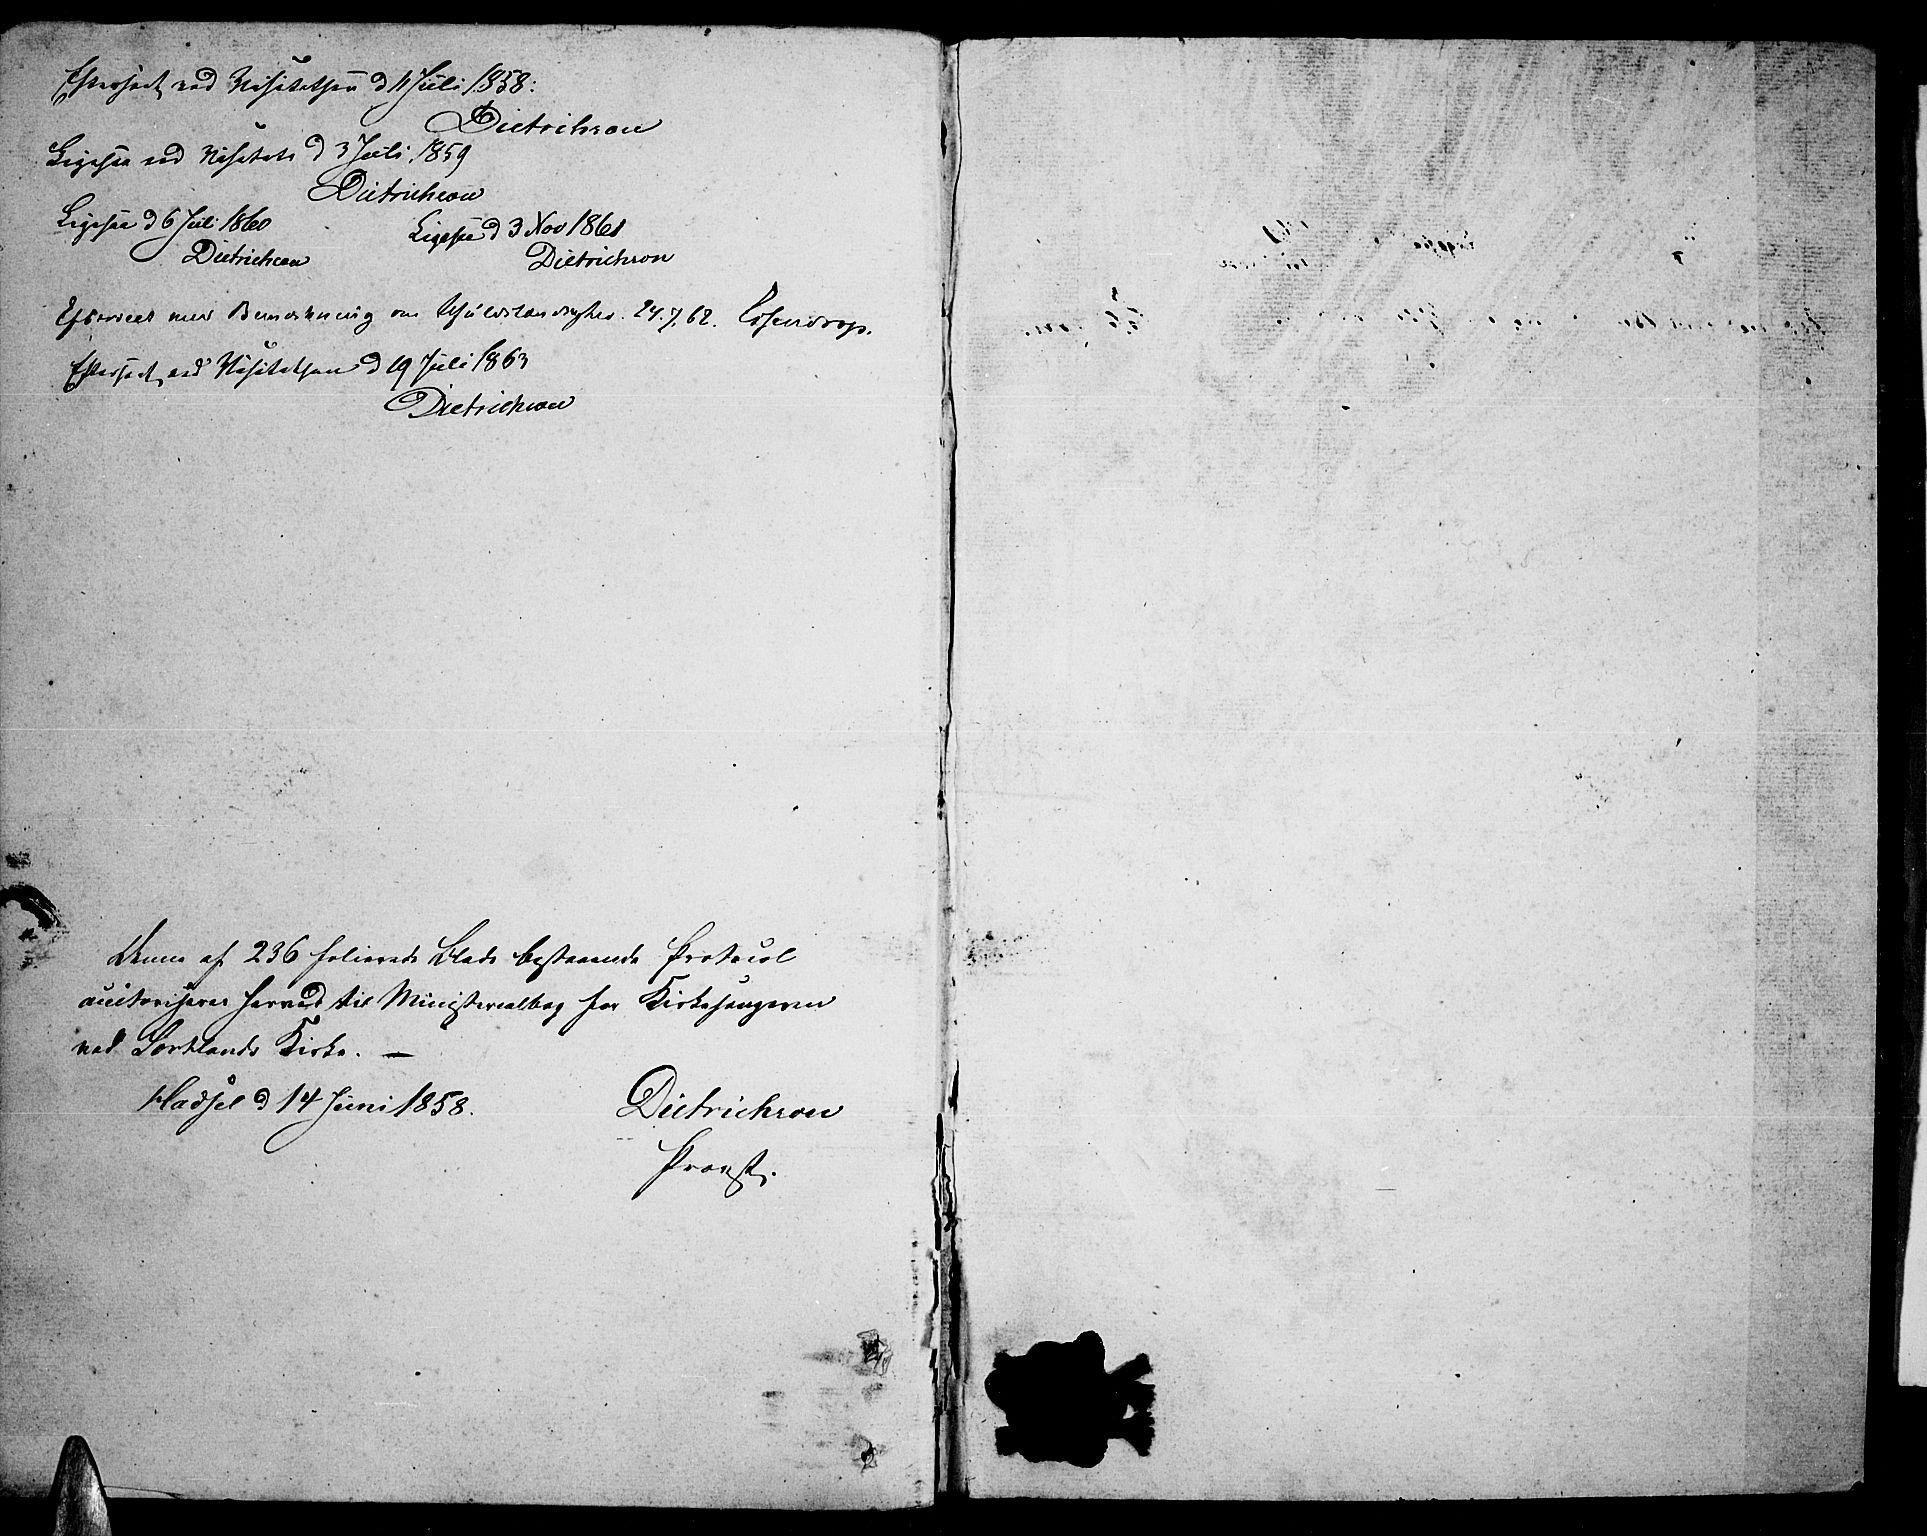 Efterseet ved Visitatsen d 11 Juli 1858.
Dietrichson
Ligesaa ved Visitats d 3 Juli 1859
Dietrichson
Ligesaa d 6 Juli 1860
Dietrichson
Ligesaa d 3 Nov 1861
Dietrichson
Efterseet med Bemærkning om Ufuldstændighed. 24.7.62.
Efterseet ved Visitatsen d 19 Juli 1863
Dietrichson
Denne af 236 folierede Blade bestaaende Protocol
auctoriseres herved til Ministerialbog for Kirkesangeren
ved Sortlands Kirke. —
Hadsel d 14 Juni 1858.
Dietrichson
Provst.